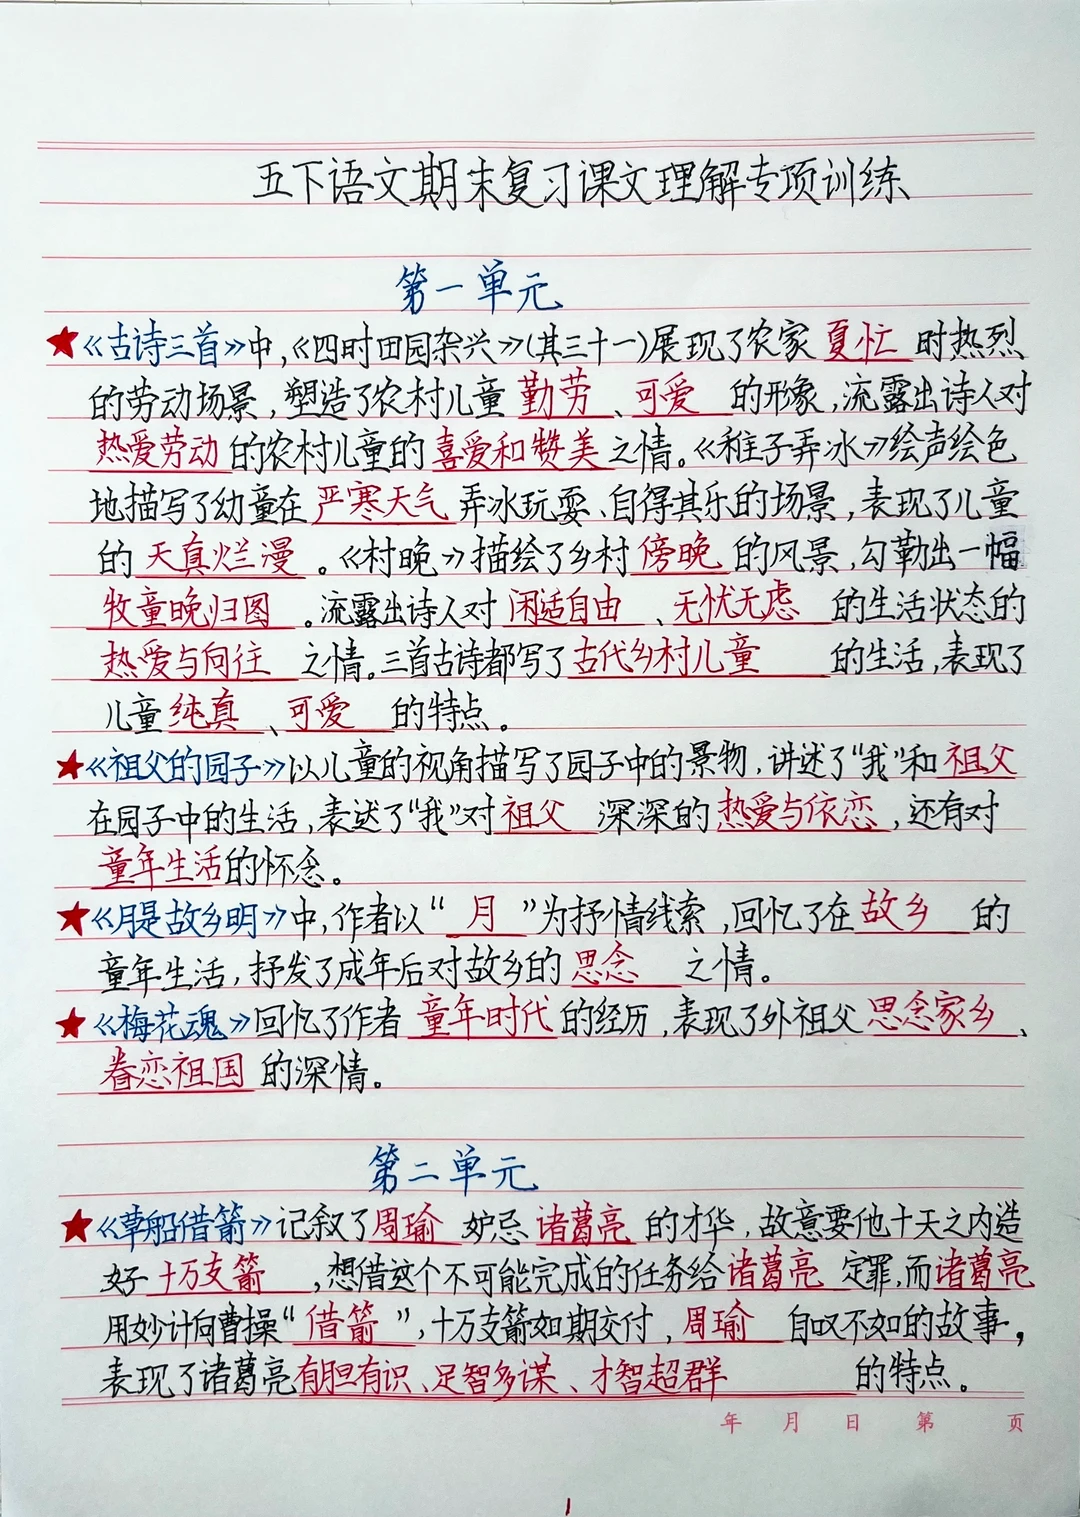 五下语文期末复习课文理解专项训练
第一单元
★《古诗三首》中,《四时田园杂兴》(其三十一)展现了农家 夏忙 时热烈
的劳动场景,塑造了农村儿童 勤劳 、可爱 的形象,流露出诗人对
热爱劳动 的农村儿童的 喜爱和赞美 之情。《稚子弄冰》绘声绘色
地描写了幼童在 严寒天气 弄冰玩耍、自得其乐的场景,表现了儿童
的 天真烂漫 。《村晚》描绘了乡村 傍晚 的风景,勾勒出一幅
牧童晚归图 。流露出诗人对 闲适自由 、无忧无虑 的生活状态的
热爱与向往 之情。三首古诗都写了 古代乡村儿童 的生活,表现了
儿童 纯真 、可爱 的特点。
★《祖父的园子》以儿童的视角描写了园子中的景物,讲述了“我”和 祖父
在园子中的生活,表达了“我”对 祖父 深深的 热爱与依恋 ,还有对
童年生活 的怀念。
★《月是故乡明》中,作者以“ 月 ”为抒情线索,回忆了在 故乡 的
童年生活,抒发了成年后对故乡的 思念 之情。
★《梅花魂》回忆了作者 童年时代 的经历,表现了外祖父 思念家乡 、
眷恋祖国 的深情。
第二单元
★《草船借箭》记叙了 周瑜 妒忌 诸葛亮 的才华,故意要他十天之内造
好 十万支箭 ,想借这个不可能完成的任务给 诸葛亮 定罪,而 诸葛亮
用妙计向曹操“ 借箭 ”,十万支箭如期交付, 周瑜 自叹不如的故事,
表现了诸葛亮 有胆有识、足智多谋、才智超群 的特点。
年 月 日 第 页
1